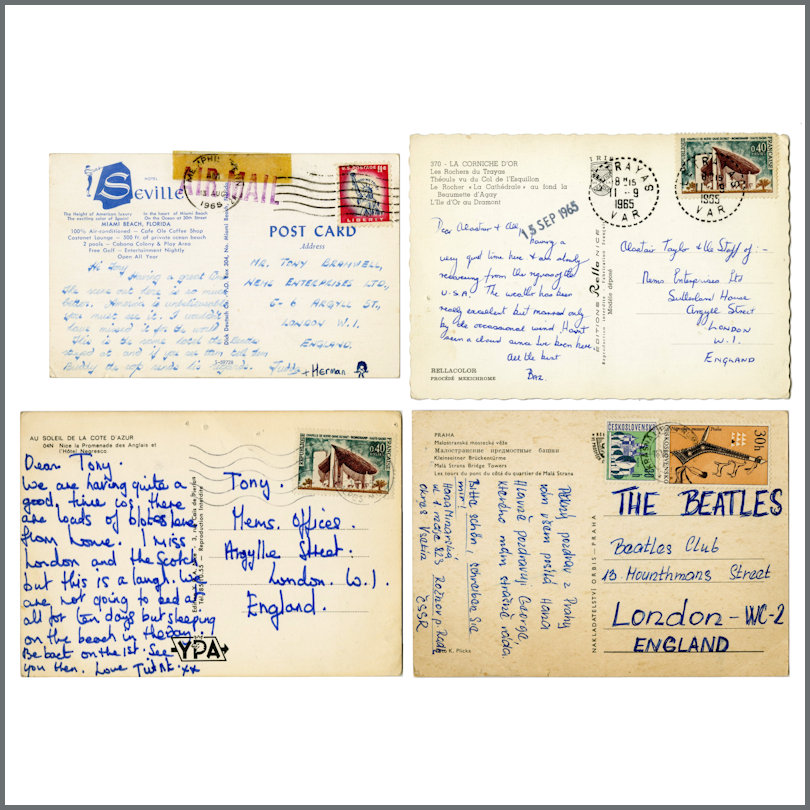 HOTEL
Seville
The Height of American luxury
The exciting color of Spain!
In the heart of Miami Beach
On the Ocean at 30th Street
MIAMI BEACH, FLORIDA
100% Air-conditioned - Cafe Ole Coffee Shop
Castanet Lounge - 500 ft. of private ocean beach
2 pools - Cabana Colony & Play Area
Free Golf - Entertainment Nightly
Open All Year
AIR MAIL
AUG
1965
U.S. POSTAGE 11¢
LIBERTY
POST CARD
Address
Hi Tony
Having a great
out here is so much
better. America is unbelievable
you must see it. I wouldn't
have missed it for the world
This is the name hotel the Beatles
stayed at and if you can
Buddy the cop sends his regards.
+ Herman
MR. TONY BRAMWELL,
NEMS ENTERPRISES LTD,
5-6 ARGYLL ST.,
LONDON W.1.
ENGLAND.
370 - LA CORNICHE D'OR
Les Rochers du Trayas
Théoule vu du Col de l'Esquillon
Le Rocher « La Cathédrale » au fond la
Beaumette d'Agay
L'Ile d'Or au Dramont
TRAYAS
18H15
11-9
1965
VAR
0,40
13 SEP 1965
Dear Alastair & Co,
Having a
very good time here & am slowly
recovering from the rigours of the
U.S.A. The weather has been
really excellent but marred only
by the occasional wind. Havnt
seen a cloud since I've been here.
All the best
Baz.
RELLACOLOR
PROCÉDÉ MEXICHROME
EDITIONS Rella NICE
Modèle déposé
Alastair Taylor & the Staff of :-
Nems Enterprises Ltd
Sutherland House
Argyll Street
LONDON
W.1.
ENGLAND
AU SOLEIL DE LA COTE D'AZUR
04N Nice la Promenade des Anglais et
l'Hôtel Negresco
0,40
Dear Tony.
We are having quite a
good time cos there
are loads of blokes here
from home. I miss
London and the Scotch
but this is a laugh. We
are not going to bed at
all for ten days but sleeping
on the beach in the day
Be back on the 1st. See
you then. Love
xx
YPA
Tony.
Nems. Offices.
Argyllle Street.
London. W.1.
England.
PRAHA
Malostranské mostecké věže
Малостранские предмостные башни
Kleinseitner Brückentürme
Malá Strana Bridge Towers
Les tours du pont du côté du quartier de Malá Strana
ČESKOSLOVENSKO
30h
Pěkný pozdrav z Prahy
vám všem posílá Hana
Hlavně pozdravuj George,
kterého mám strašně ráda.
Bitte schön, schreiben Sie
mir!
Hana
823 Rožnov p. Radh
okres Vsetín
ČSSR
K. Plicka
NAKLADATELSTVÍ ORBIS - PRAHA
THE BEATLES
Beatles Club
13. Mounthmans Street
London - WC-2
ENGLAND